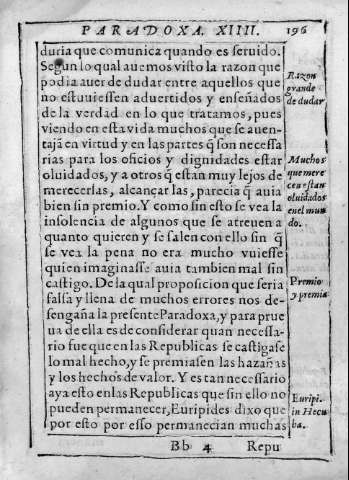 PARADOXA. XIIII. 196
duria que comunica quando es seruido.
Segun lo qual auemos visto la razon que
podia auer de dudar entre aquellos que
no estuuiessen aduertidos y enseñados
de la verdad en lo que tratamos, pues
viendo en esta vida muchos que se auen-
tajā en virtud y en las partes q̃ son necessa
rias para los oficios y dignidades estar
oluidados, y a otros q̃ estan muy lejos de
merecerlas, alcançarlas, parecia q̃ auia
bien sin premio. Y como sin esto se vea la
insolencia de algunos que se atreuen a
quanto quieren y se salen con ello sin q̃
se vea la pena no era mucho vuiesse
quien imaginasse auia tambien mal sin
castigo. De la qual proposicion que seria
falsa y llena de muchos errores nos de-
sengaña la presente Paradoxa, y para prue
ua de ella es de considerar quan necessa-
rio fue que en las Republicas se castigase
lo mal hecho, y se premiasen las hazañas
y los hechos de valor. Y es tan necessario
aya esto en las Republicas que sin ello no
pueden permanecer, Euripides dixo que
por esto por esso permanecian muchas
Bb 4 Repu
Razon
grande
de dudar
Muchos
que mere
cen estan
oluidados
en el mun
do.
Premio
y premia
Euripi.
in Hecu
ba.